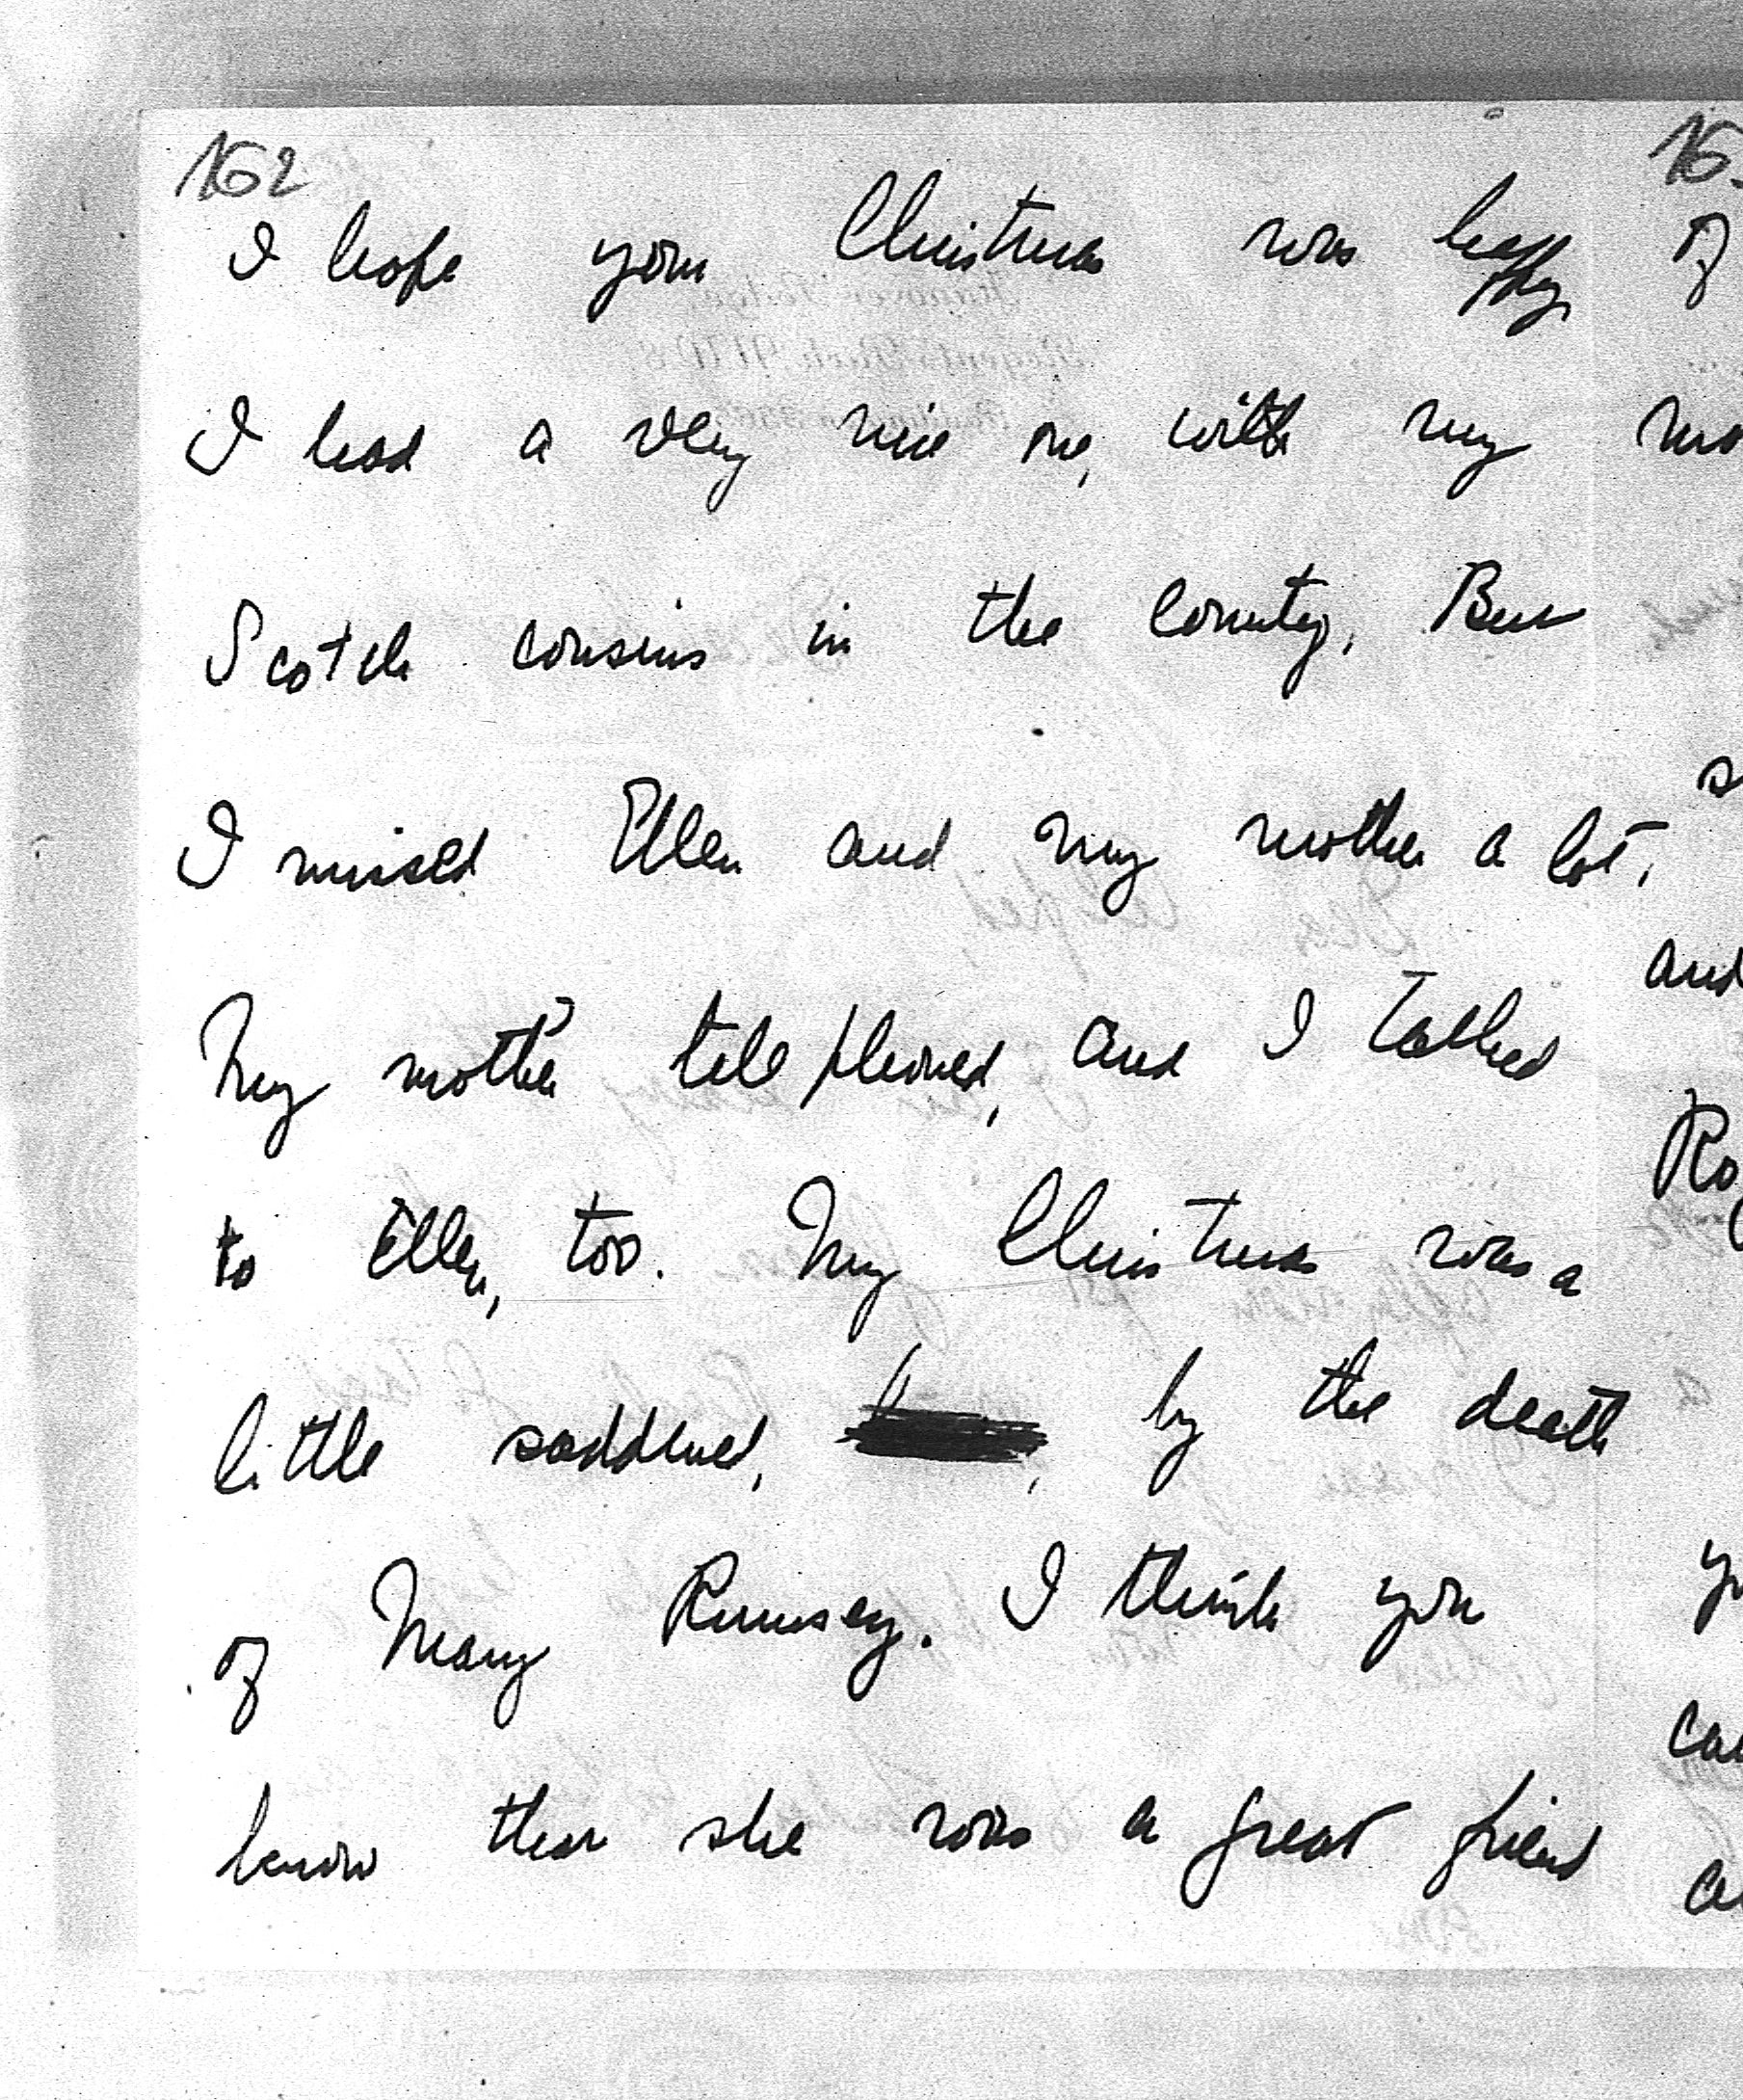 162
I hope your Christmas was happy
I had a very nice one, with my
Scotch cousins in the country. But
I missed Ellen and my mother a lot.
My mother telephoned, and I talked
to Ellen, too. My Christmas was a
little saddened, by the death
of Mary Rumsey. I think you
know that she was a great friend
16
of
and